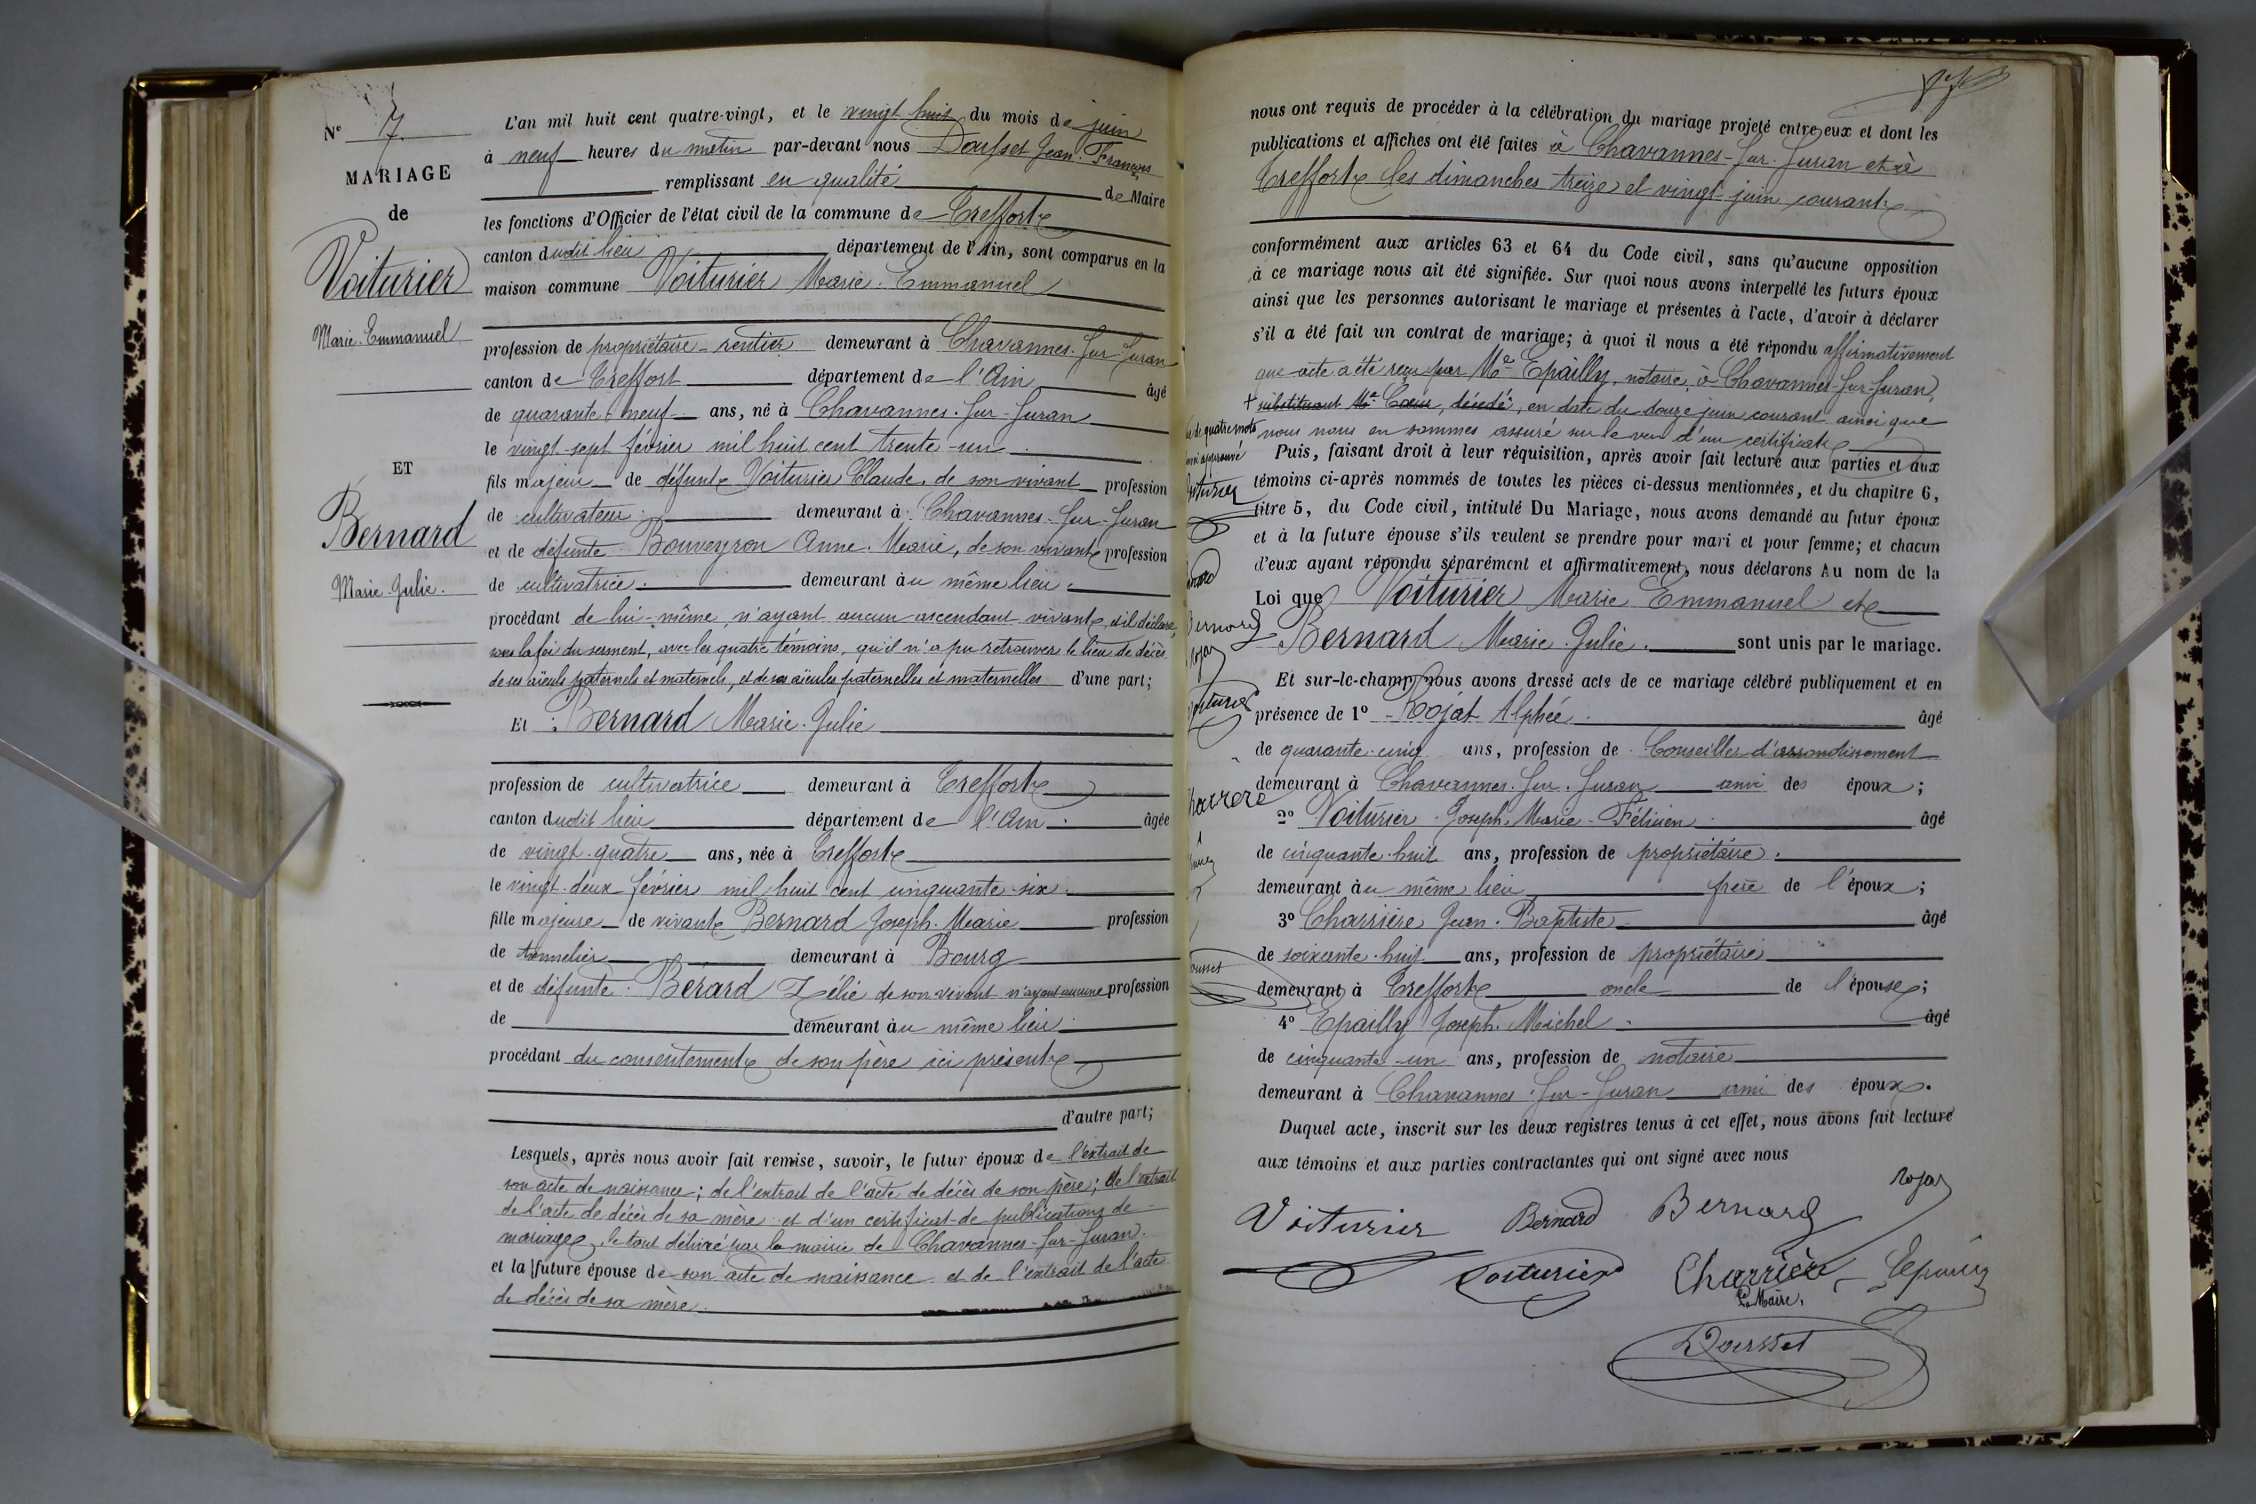 N° 7
MARIAGE
de
Voiturier
Marie-Emmanuel
ET
Bernard
Marie-Julie.
L'an mil huit cent quatre-vingt, et le vingt huit du mois de juin
à neuf heures du matin par-devant nous Dousset Jean-François
remplissant en qualité de Maire
les fonctions d'Officier de l'état civil de la commune de Treffort
canton dudit lieu département de l'Ain, sont comparus en la
maison commune Voiturier Marie-Emmanuel
profession de propriétaire-rentier demeurant à Chavannes-sur-Suran
canton de Treffort département de l'Ain âgé
de quarante-neuf ans, né à Chavannes-sur-Suran
le vingt-sept février mil huit cent trente-un
fils majeur de défunt Voiturier Claude, de son vivant profession
de cultivateur demeurant à Chavannes-sur-Suran
et de défunte Bouveyron Anne-Marie, de son vivant profession
de cultivatrice. demeurant au même lieu.
procédant de lui-même, n'ayant aucun ascendant vivant, et il déclare,
sous la foi du serment, avec les quatre témoins, qu'il n'a pu retrouver le lieu de décès
de ses aïeuls paternels et maternels, et de ses aïeules paternelles et maternelles d'une part;
Et : Bernard Marie-Julie
profession de cultivatrice demeurant à Treffort
canton dudit lieu département de l'Ain. âgée
de vingt-quatre ans, née à Treffort
le vingt-deux février mil huit cent cinquante-six.
fille majeure de vivant Bernard Joseph-Marie profession
de tonnelier demeurant à Bourg
et de défunte Bérard Zélie de son vivant n'ayant aucune profession
de demeurant au même lieu.
procédant du consentement de son père ici présent
d'autre part;
Lesquels, après nous avoir fait remise, savoir, le futur époux de l'extrait de
son acte de naissance; de l'extrait de l'acte de décès de son père; de l'extrait
de l'acte de décès de sa mère et d'un certificat de publications de
mariage, le tout délivré par la mairie de Chavannes-sur-Suran.
et la future épouse de son acte de naissance et de l'extrait de l'acte
de décès de sa mère.
nous ont requis de procéder à la célébration du mariage projeté entre eux et dont les
publications et affiches ont été faites à Chavannes-sur-Suran et à
Treffort les dimanches treize et vingt juin courant
conformément aux articles 63 et 64 du Code civil, sans qu'aucune opposition
à ce mariage nous ait été signifiée. Sur quoi nous avons interpellé les futurs époux
ainsi que les personnes autorisant le mariage et présentes à l'acte, d'avoir à déclarer
s'il a été fait un contrat de mariage; à quoi il nous a été répondu affirmativement
que acte a été reçu par Me Epailly, notaire, à Chavannes-sur-Suran,
+ substituant Me Coeur, décédé, en date du douze juin courant ainsi que
nous nous en sommes assuré sur le vu d'un certificat
Puis, faisant droit à leur réquisition, après avoir fait lecture aux parties et aux
témoins ci-après nommés de toutes les pièces ci-dessus mentionnées, et du chapitre 6,
titre 5, du Code civil, intitulé Du Mariage, nous avons demandé au futur époux
et à la future épouse s'ils veulent se prendre pour mari et pour femme; et chacun
d'eux ayant répondu séparément et affirmativement, nous déclarons Au nom de la
Loi que Voiturier Marie Emmanuel et
Bernard Marie-Julie. sont unis par le mariage.
Et sur-le-champ nous avons dressé acte de ce mariage célébré publiquement et en
présence de 1° Rojat Alphée. âgé
de quarante-cinq ans, profession de Conseiller d'arrondissement
demeurant à Chavannes-sur-Suran ami des époux;
2° Voiturier Joseph-Marie-Félicien âgé
de cinquante-huit ans, profession de propriétaire.
demeurant au même lieu frère de l'époux;
3° Charrière Jean-Baptiste âgé
de soixante-huit ans, profession de propriétaire
demeurant à Treffort oncle de l'épouse;
4° Epailly Joseph-Michel âgé
de cinquante-un ans, profession de notaire
demeurant à Chavannes-sur-Suran ami des époux.
Duquel acte, inscrit sur les deux registres tenus à cet effet, nous avons fait lecture
aux témoins et aux parties contractantes qui ont signé avec nous
Rojat
Voiturier Bernard Bernard
Voiturier Charrière Epailly
Le Maire,
Dousset
de quatre mots
approuvé
Bernard
Rojat
Voiturier